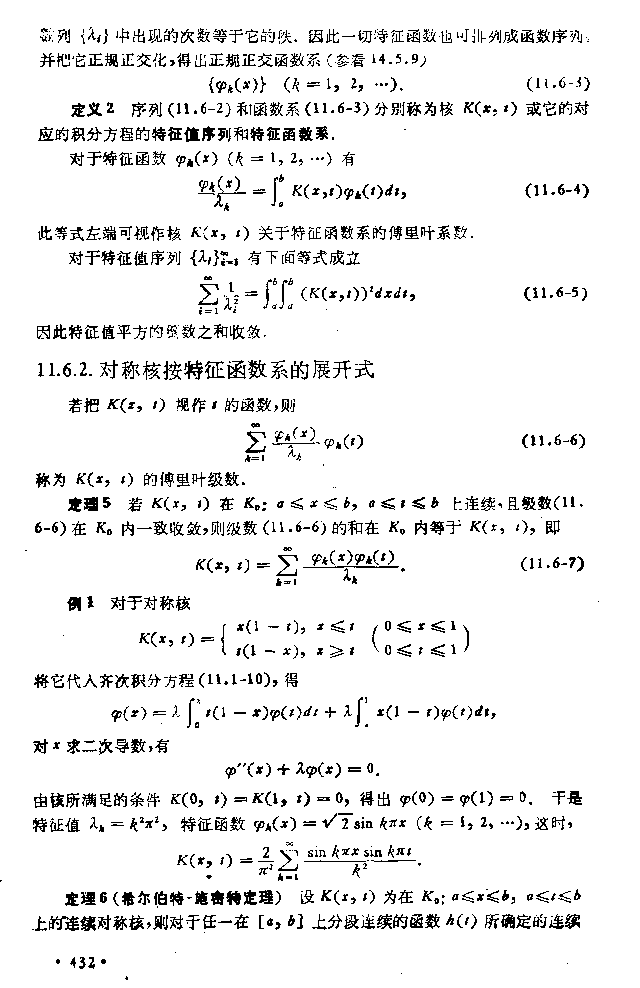 数列 {λᵢ} 中出现的次数等于它的秩. 因此一切特征函数也可排列成函数序列,
并把它正规正交化,得出正规正交函数系(参看 14.5.9)
{φₖ(x)} (k = 1, 2, ⋯). (11.6-3)
定义 2 序列 (11.6-2) 和函数系 (11.6-3) 分别称为核 K(x, t) 或它的对
应的积分方程的特征值序列和特征函数系.
对于特征函数 φₖ(x) (k = 1, 2, ⋯) 有
φₖ(x)/λₖ = ∫ₐᵇ K(x,t)φₖ(t)dt, (11.6-4)
此等式左端可视作核 K(x, t) 关于特征函数系的傅里叶系数.
对于特征值序列 {λᵢ}∞ᵢ₌₁ 有下面等式成立
∑∞ᵢ₌₁ 1/λᵢ² = ∫ₐᵇ∫ₐᵇ (K(x,t))²dxdt, (11.6-5)
因此特征值平方的倒数之和收敛.
11.6.2. 对称核按特征函数系的展开式
若把 K(x, t) 视作 t 的函数,则
∑∞ₖ₌₁ φₖ(x)/λₖ φₖ(t) (11.6-6)
称为 K(x, t) 的傅里叶级数.
定理 5 若 K(x, t) 在 K₀: a ≤ x ≤ b, a ≤ t ≤ b 上连续,且级数(11.
6-6) 在 K₀ 内一致收敛,则级数 (11.6-6) 的和在 K₀ 内等于 K(x, t), 即
K(x, t) = ∑∞ₖ₌₁ φₖ(x)φₖ(t)/λₖ. (11.6-7)
例 1 对于对称核
K(x, t) = { x(1 − t), x ≤ t; t(1 − x), x ≥ t (0 ≤ x ≤ 1; 0 ≤ t ≤ 1)
将它代入齐次积分方程 (11.1-10), 得
φ(x) = λ∫₀ˣ t(1 − x)φ(t)dt + λ∫ₓ¹ x(1 − t)φ(t)dt,
对 x 求二次导数,有
φ″(x) + λφ(x) = 0.
由核所满足的条件 K(0, t) = K(1, t) = 0, 得出 φ(0) = φ(1) = 0. 于是
特征值 λₖ = k²π², 特征函数 φₖ(x) = √2 sin kπx (k = 1, 2, ⋯), 这时,
K(x, t) = 2/π² ∑∞ₖ₌₁ sin kπx sin kπt/k².
定理 6 (希尔伯特-施密特定理) 设 K(x, t) 为在 K₀: a≤x≤b, a≤t≤b
上的连续对称核,则对于任一在 [a, b] 上分段连续的函数 h(t) 所确定的连续
• 432 •